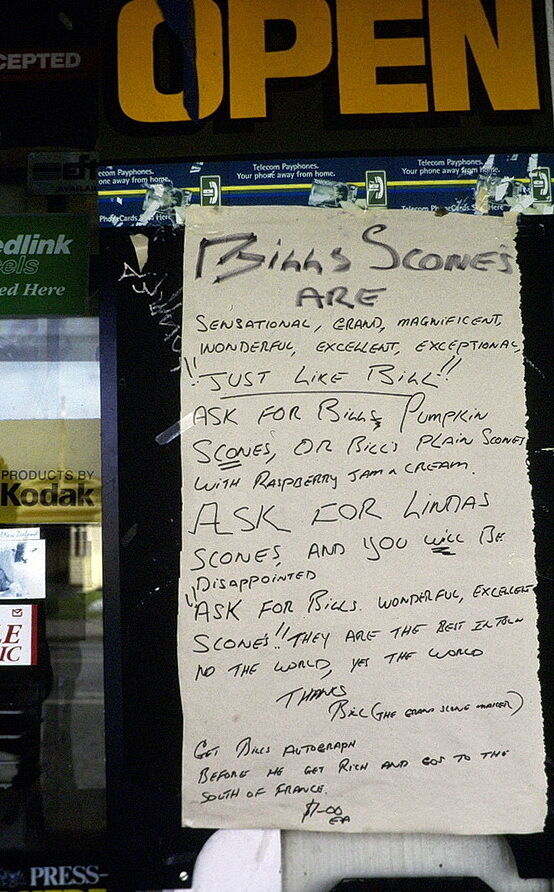 OPEN
CEPTED
Telecom Payphones.
one away from home.
Telecom Payphones.
Your phone away from home.
Telecom Payphones.
Your phone away from home.
AVAILABLE
edlink
cels
ed Here
PRODUCTS BY
Kodak
LE
IC
PRESS-
BILLS SCONES
ARE
SENSATIONAL, GRAND, MAGNIFICENT,
WONDERFUL, EXCELLENT, EXCEPTIONAL,
"JUST LIKE BILL"!!
ASK FOR BILLS PUMPKIN
SCONES, OR BILL'S PLAIN SCONES
WITH RASPBERRY JAM & CREAM.
ASK FOR LINDAS
SCONES, AND YOU WILL BE
DISAPPOINTED
"ASK FOR BILLS. WONDERFUL, EXCELLENT
SCONES"!! THEY ARE THE BEST IN TOWN
NO THE WORLD, YES THE WORLD
THANKS
BILL (THE GRAND SCONE MAKER)
GET BILLS AUTOGRAPH
BEFORE HE GET RICH AND GOS TO THE
SOUTH OF FRANCE.
$1-00
EA